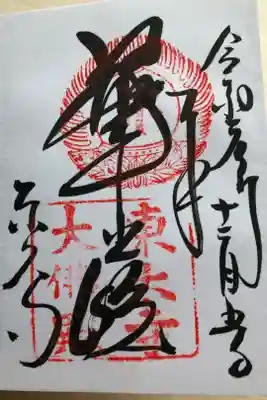 令和元年十二月
奉拝
華嚴
東大寺
東大寺
大佛殿